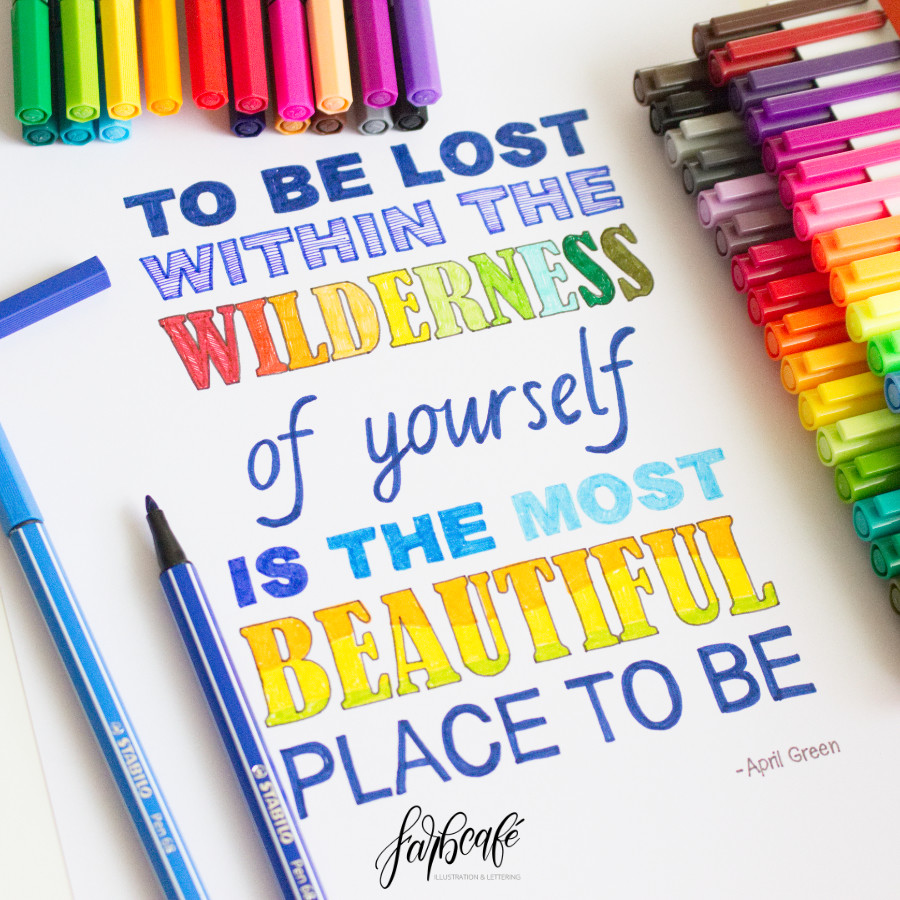 TO BE LOST
WITHIN THE
WILDERNESS
of yourself
IS THE MOST
BEAUTIFUL
PLACE TO BE
-April Green
STABILO Pen 68
STABILO Pen 68
farbcafé
ILLUSTRATION & LETTERING